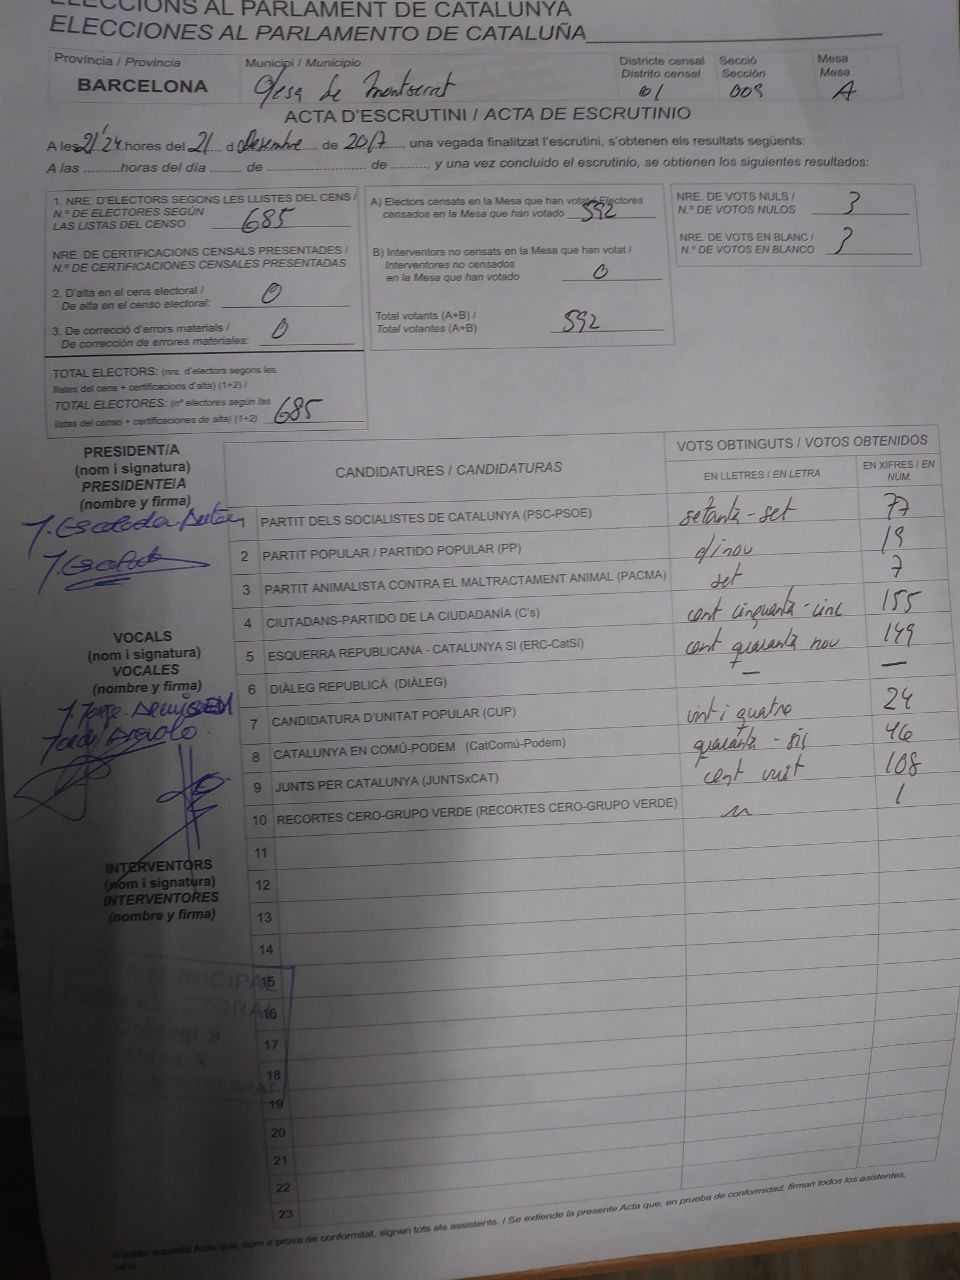 ELECCIONS AL PARLAMENT DE CATALUNYA
ELECCIONES AL PARLAMENTO DE CATALUÑA
Provincia / Provincia
BARCELONA
Municipi / Municipio
Olesa de Montserrat
Districte censal
Distrito censal
01
Secció
Sección
009
Mesa
Mesa
A
ACTA D'ESCRUTINI / ACTA DE ESCRUTINIO
A les 21'24 hores del 21 d Desembre de 2017, una vegada finalitzat l'escrutini, s'obtenen els resultats següents:
A las .........horas del día ........ de ......................... de .........., y una vez concluido el escrutinio, se obtienen los siguientes resultados:
1. NRE. D'ELECTORS SEGONS LES LLISTES DEL CENS /
N.º DE ELECTORES SEGÚN
LAS LISTAS DEL CENSO 685
NRE. DE CERTIFICACIONS CENSALS PRESENTADES /
N.º DE CERTIFICACIONES CENSALES PRESENTADAS
2. D'alta en el cens electoral /
De alta en el censo electoral: 0
3. De correcció d'errors materials /
De corrección de errores materiales: 0
TOTAL ELECTORS: (nre. d'electors segons les
llistes del cens + certificacions d'alta) (1+2) /
TOTAL ELECTORES: (nº electores según las
listas del censo + certificaciones de alta) (1+2) 685
A) Electors censats en la Mesa que han votat / Electores
censados en la Mesa que han votado 592
B) Interventors no censats en la Mesa que han votat /
Interventores no censados
en la Mesa que han votado 0
Total votants (A+B) /
Total votantes (A+B) 592
NRE. DE VOTS NULS /
N.º DE VOTOS NULOS 3
NRE. DE VOTS EN BLANC /
N.º DE VOTOS EN BLANCO 3
PRESIDENT/A
(nom i signatura)
PRESIDENTE/A
(nombre y firma)
VOCALS
(nom i signatura)
VOCALES
(nombre y firma)
INTERVENTORS
(nom i signatura)
INTERVENTORES
(nombre y firma)
CANDIDATURES / CANDIDATURAS
VOTS OBTINGUTS / VOTOS OBTENIDOS
EN LLETRES / EN LETRA
EN XIFRES / EN
NÚM.
PARTIT DELS SOCIALISTES DE CATALUNYA (PSC-PSOE) setanta-set 77
2 PARTIT POPULAR / PARTIDO POPULAR (PP) dinou 19
3 PARTIT ANIMALISTA CONTRA EL MALTRACTAMENT ANIMAL (PACMA) set 7
4 CIUTADANS-PARTIDO DE LA CIUDADANÍA (C's) cent cinquanta-cinc 155
5 ESQUERRA REPUBLICANA - CATALUNYA SI (ERC-CatSí) cent quaranta nou 149
6 DIÀLEG REPUBLICÀ (DIÀLEG) — —
7 CANDIDATURA D'UNITAT POPULAR (CUP) vint i quatre 24
8 CATALUNYA EN COMÚ-PODEM (CatComú-Podem) quaranta-sis 46
9 JUNTS PER CATALUNYA (JUNTSxCAT) cent vuit 108
10 RECORTES CERO-GRUPO VERDE (RECORTES CERO-GRUPO VERDE) un 1
11
12
13
14
15
16
17
18
19
20
21
22
23
S'estén aquesta Acta que, com a prova de conformitat, signen tots els assistents. / Se extiende la presente Acta que, en prueba de conformidad, firman todos los asistentes.